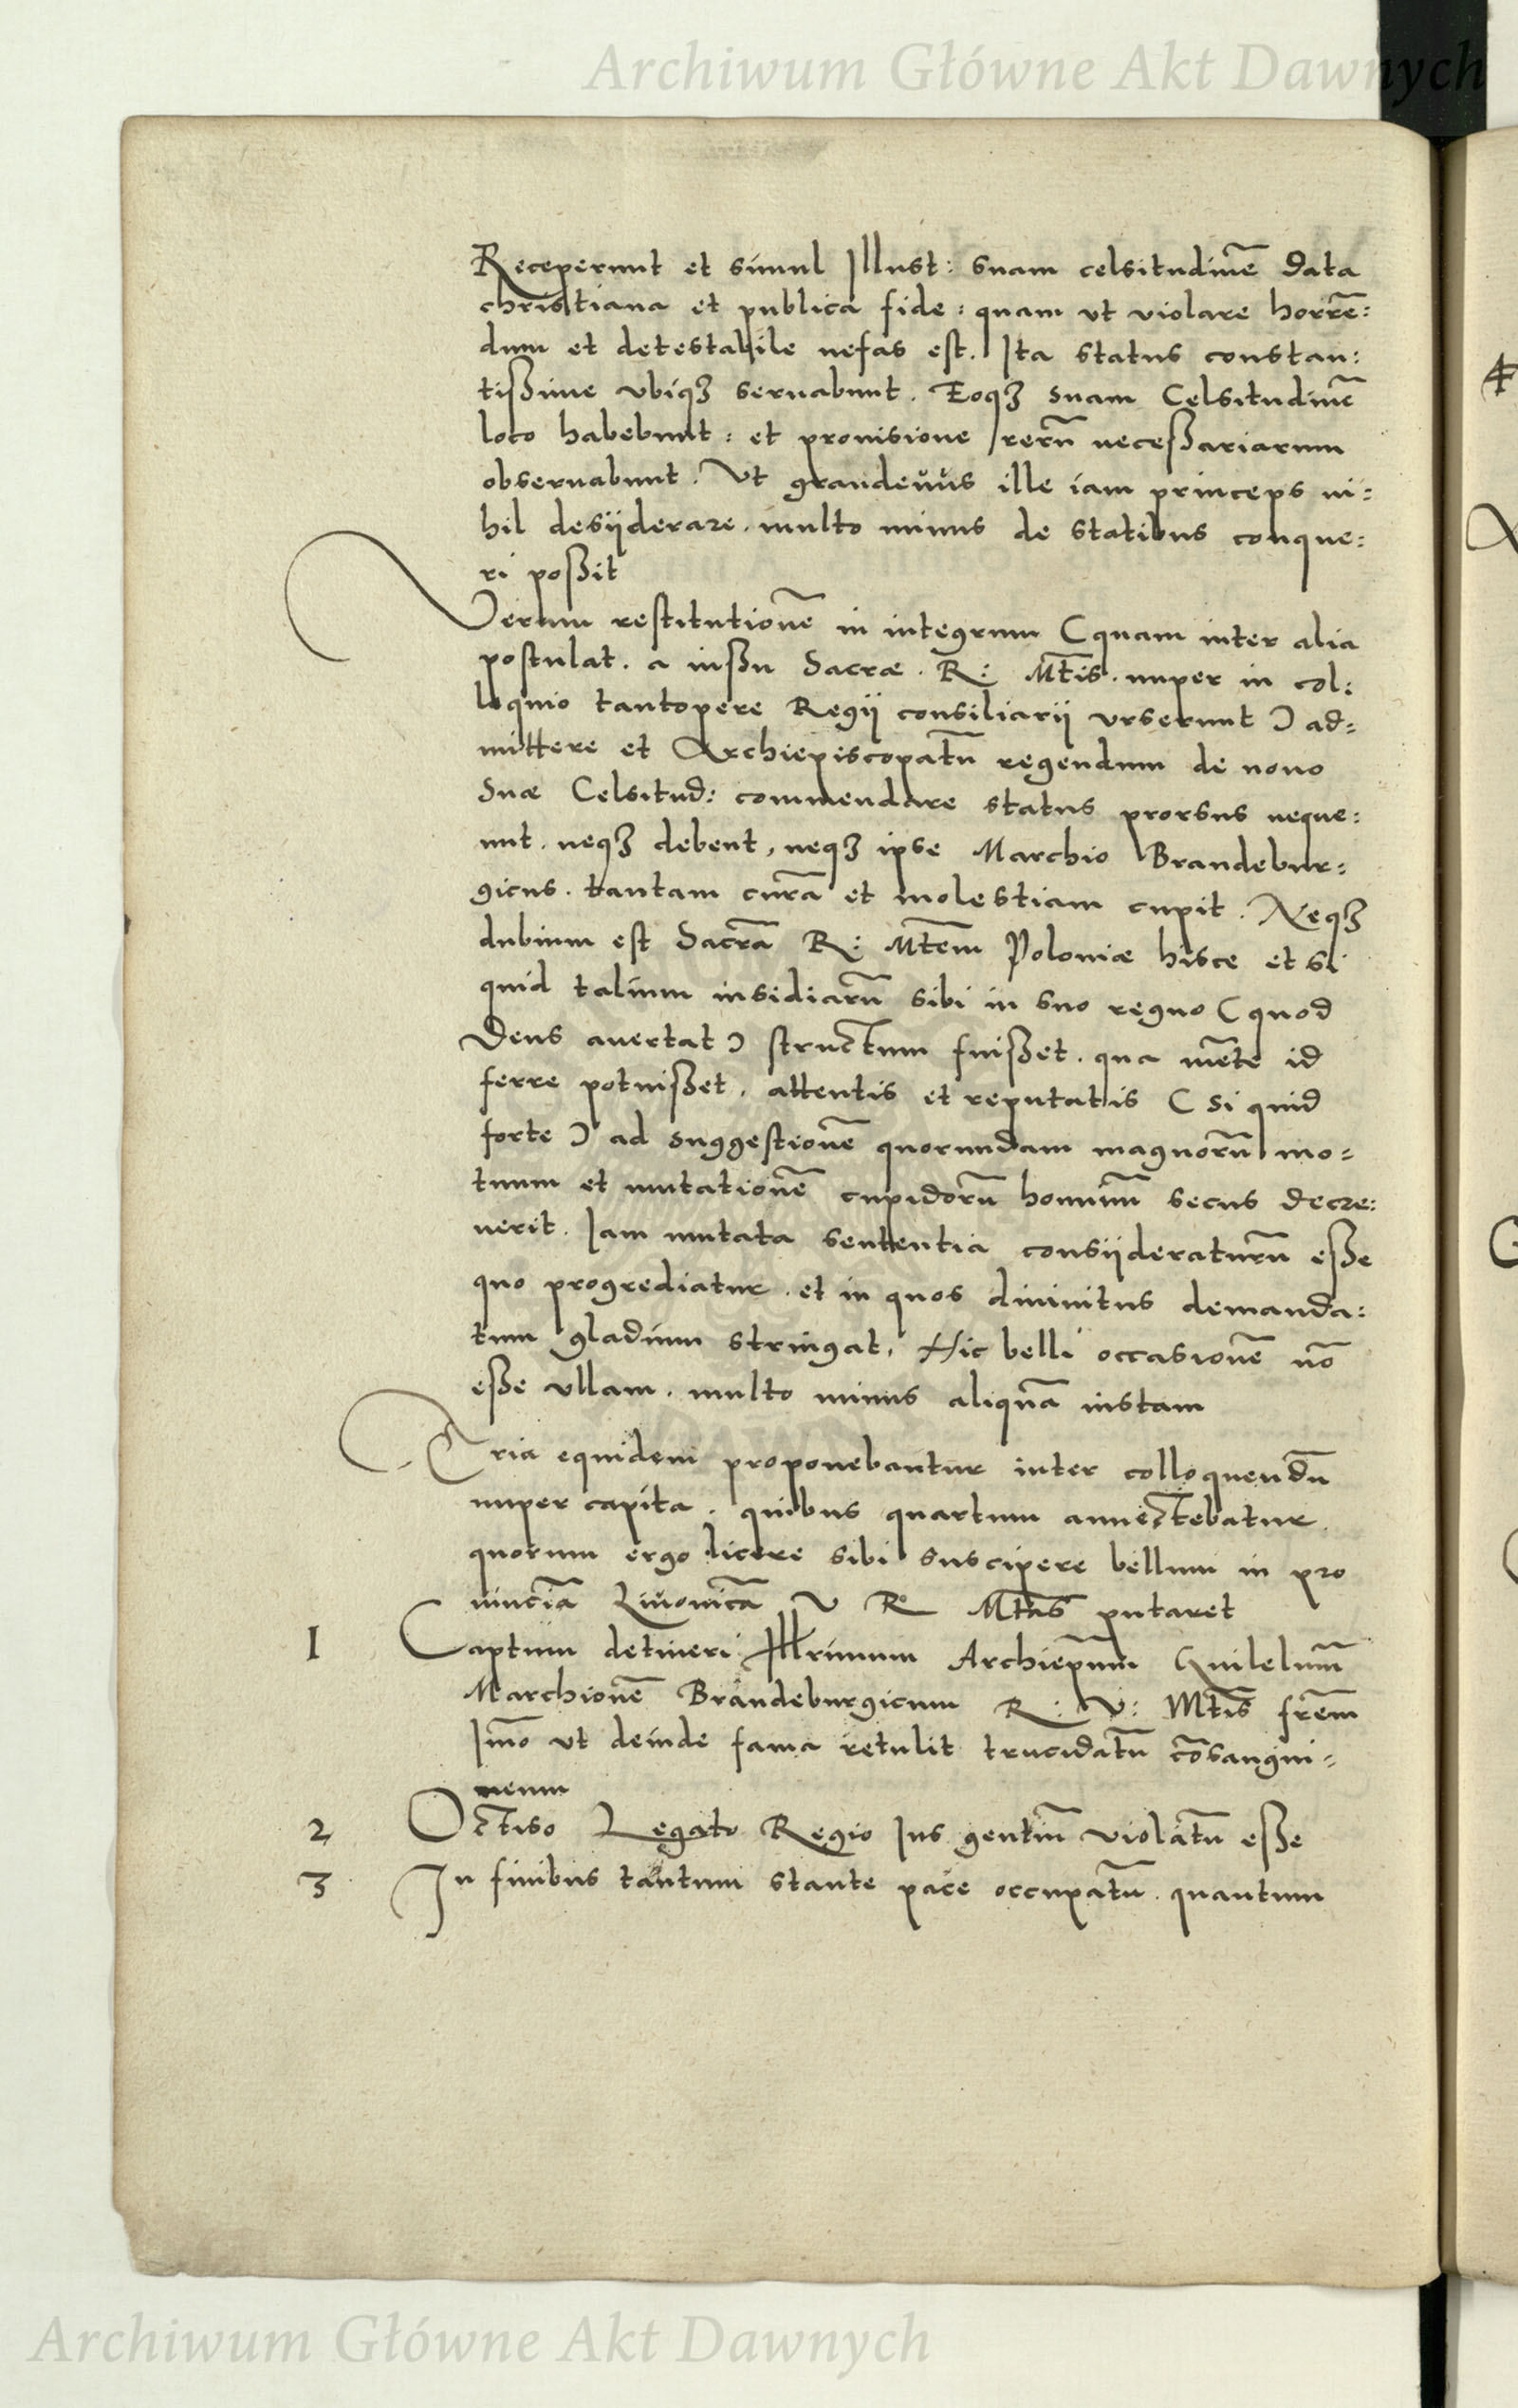 Archiwum Główne Akt Dawnych
Receperunt et simul Illust: suam celsitudinē data
christiana et publica fide: quam ut violare horrē:
dum et detestabile nefas est. Ita status constan:
tißime ubiqꝫ servabunt. Eoqꝫ suam Celsitudinē
loco habebunt: et provisione rerū neceßariarum
observabunt. Ut grandevus ille iam princeps ni:
hil desijderare. multo minus de statibus conque:
ri poßit
Verum restitutionē in integrum (quam inter alia
postulat. a inßu Sacræ. R: Mt̄is. nuper in col:
loquio tantopere Regij consiliarij urserunt) ad:
mittere et Archiepiscopatū regendum de novo
Suæ Celsitud: commendare status prorsus neque:
unt. neqꝫ debent, neqꝫ ipse Marchio Brandebur:
gicus. tantam curā et molestiam cupit. Neqꝫ
dubium est Sacrā R: Mt̄em Poloniæ hisce et si
quid talium insidiarū sibi in suo regno (quod
Deus avertat) structum fuißet. qua mēte id
ferre potuißet. attentis et reputatis (si quid
forte) ad suggestionē quorundam magnorū mo:
tuum et mutationē cupidorū hominū secus decre:
verit. Iam mutata sententia consijderaturū eße
quo progrediatur. et in quos divinitus demanda:
tum gladium stringat. Hic belli occasionē nō
eße ullam. multo minus aliquā iustam
Tria equidem proponebantur inter colloquendū
nuper capita. quibus quartum annectebatur.
quorum ergo licere sibi suscipere bellum in pro
vinciā Livonicā V R Mt̄as putaret
1 Captum detineri Illrimum Archiep̄um Guilelmū
Marchionē Brandeburgicum R: V: Mt̄is fr̄em
Im̄o ut deinde fama retulit trucidatū cōsangui:
neum
2 Occiso Legato Regio Ius gentiū violatū eße
3 In finibus tantum stante pace occupatū. quantum
Archiwum Główne Akt Dawnych